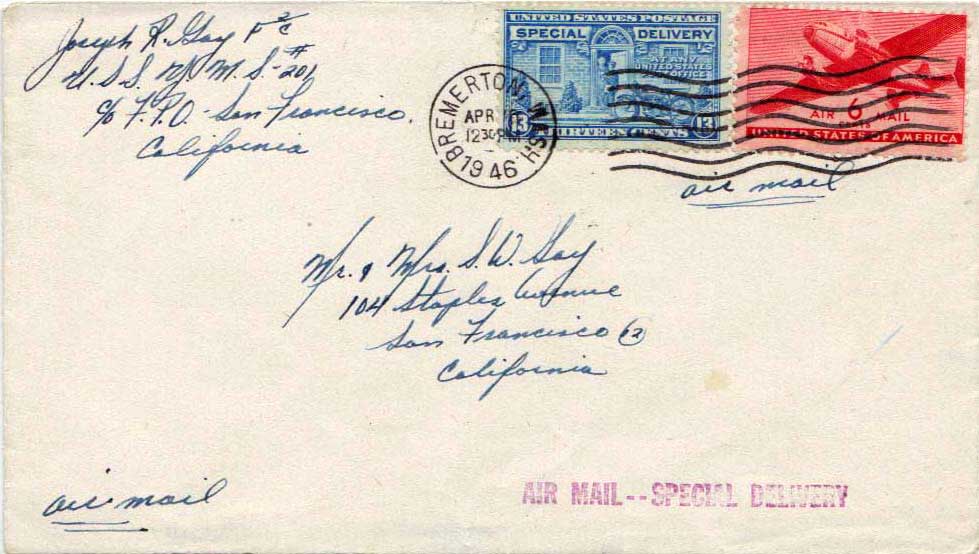 Joseph R. Gay F 2/c
U.S.S. Y M.S-201
c/o F.P.O - San Francisco.
California
UNITED STATES POSTAGE
SPECIAL DELIVERY
AT ANY
UNITED STATES
POST OFFICE
13 THIRTEEN CENTS 13
AIR 6 MAIL
CENTS
UNITED STATES OF AMERICA
BREMERTON, WASH.
APR
1230 PM
1946
air mail
Mr. & Mrs. S. W. Gay
104 Staples Avenue
San Francisco 12
California
air mail
AIR MAIL -- SPECIAL DELIVERY